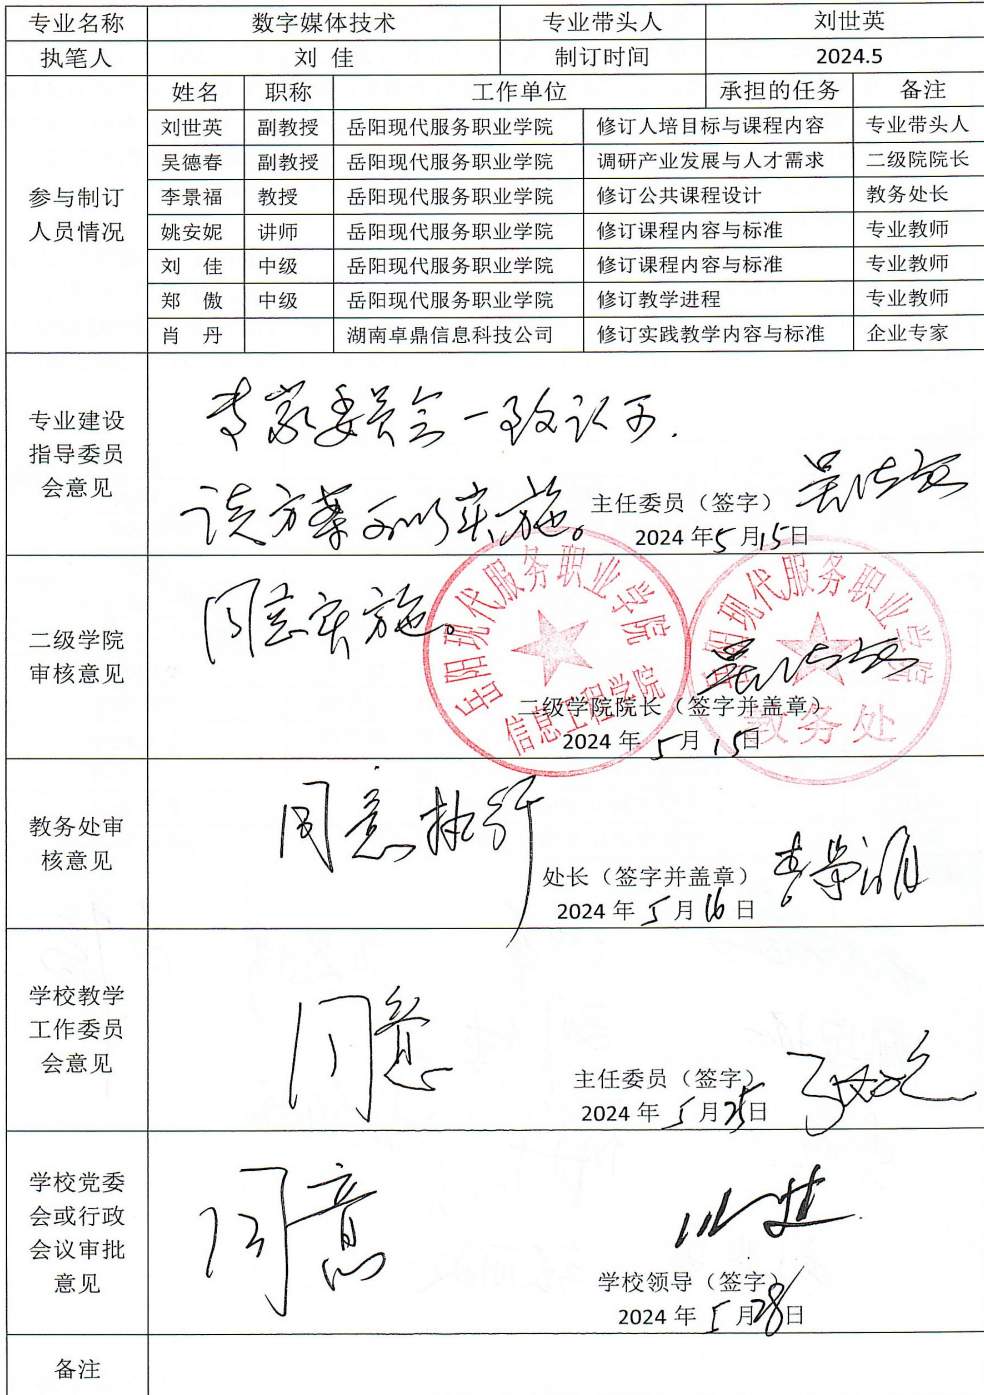 专业名称 数字媒体技术 专业带头人 刘世英
执笔人 刘 佳 制订时间 2024.5
参与制订
人员情况
姓名 职称 工作单位 承担的任务 备注
刘世英 副教授 岳阳现代服务职业学院 修订人培目标与课程内容 专业带头人
吴德春 副教授 岳阳现代服务职业学院 调研产业发展与人才需求 二级院院长
李景福 教授 岳阳现代服务职业学院 修订公共课程设计 教务处长
姚安妮 讲师 岳阳现代服务职业学院 修订课程内容与标准 专业教师
刘 佳 中级 岳阳现代服务职业学院 修订课程内容与标准 专业教师
郑 傲 中级 岳阳现代服务职业学院 修订教学进程 专业教师
肖 丹 湖南卓鼎信息科技公司 修订实践教学内容与标准 企业专家
专业建设
指导委员
会意见
专家委员会一致认可.
该方案可以实施。
主任委员（签字）
2024 年 5 月 15 日
二级学院
审核意见
同意实施。
岳阳现代服务职业学院
信息工程学院
岳阳现代服务职业学院
教务处
二级学院院长（签字并盖章）
2024 年 5 月 15 日
教务处审
核意见
同意执行
处长（签字并盖章）
2024 年 5 月 16 日
学校教学
工作委员
会意见
同意
主任委员（签字）
2024 年 5 月 25 日
学校党委
会或行政
会议审批
意见
同意
学校领导（签字）
2024 年 5 月 28 日
备注